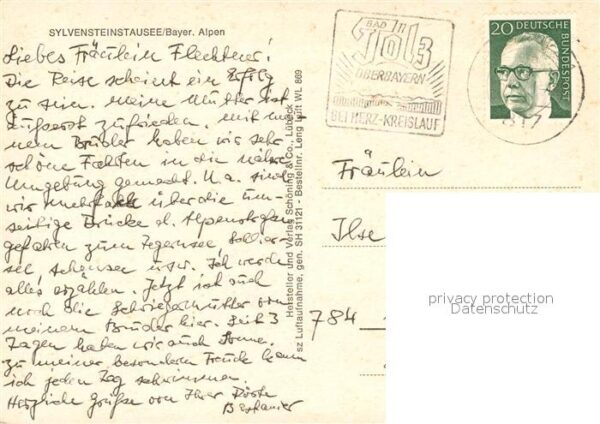 SYLVENSTEINSTAUSEE/Bayer. Alpen
Liebes Fräulein Flechtner!
Die Reise scheint ein Erfolg
zu sein. Meine Mutter ist
äußerst zufrieden. Mit mei-
nem Bruder haben wir sehr
schöne Fahrten in die nähere
Umgebung gemacht. U.a. sind
wir mehrfach über die um-
seitige Brücke d. Alpenstraße
gefahren zum Tegernsee, Schlier-
see usw. Ich werde
alles erzählen. Jetzt ist auch
noch die Schwiegermutter von
meinem Bruder hier. Seit 3
Tagen haben wir auch Sonne.
Zu meiner besonderen Freude kann
ich jeden Tag schwimmen.
Herzliche Grüße von Ihrer
Hersteller und Verlag Schöning & Co., Lübeck
sz Luftaufnahme, gen. SH 31121 - Bestellnr. Leng Luft WL 869
BAD in
Tölz
OBERBAYERN
BEI HERZ-KREISLAUF
20 DEUTSCHE
BUNDESPOST
Fräulein
Ilse
784
privacy protection
Datenschutz